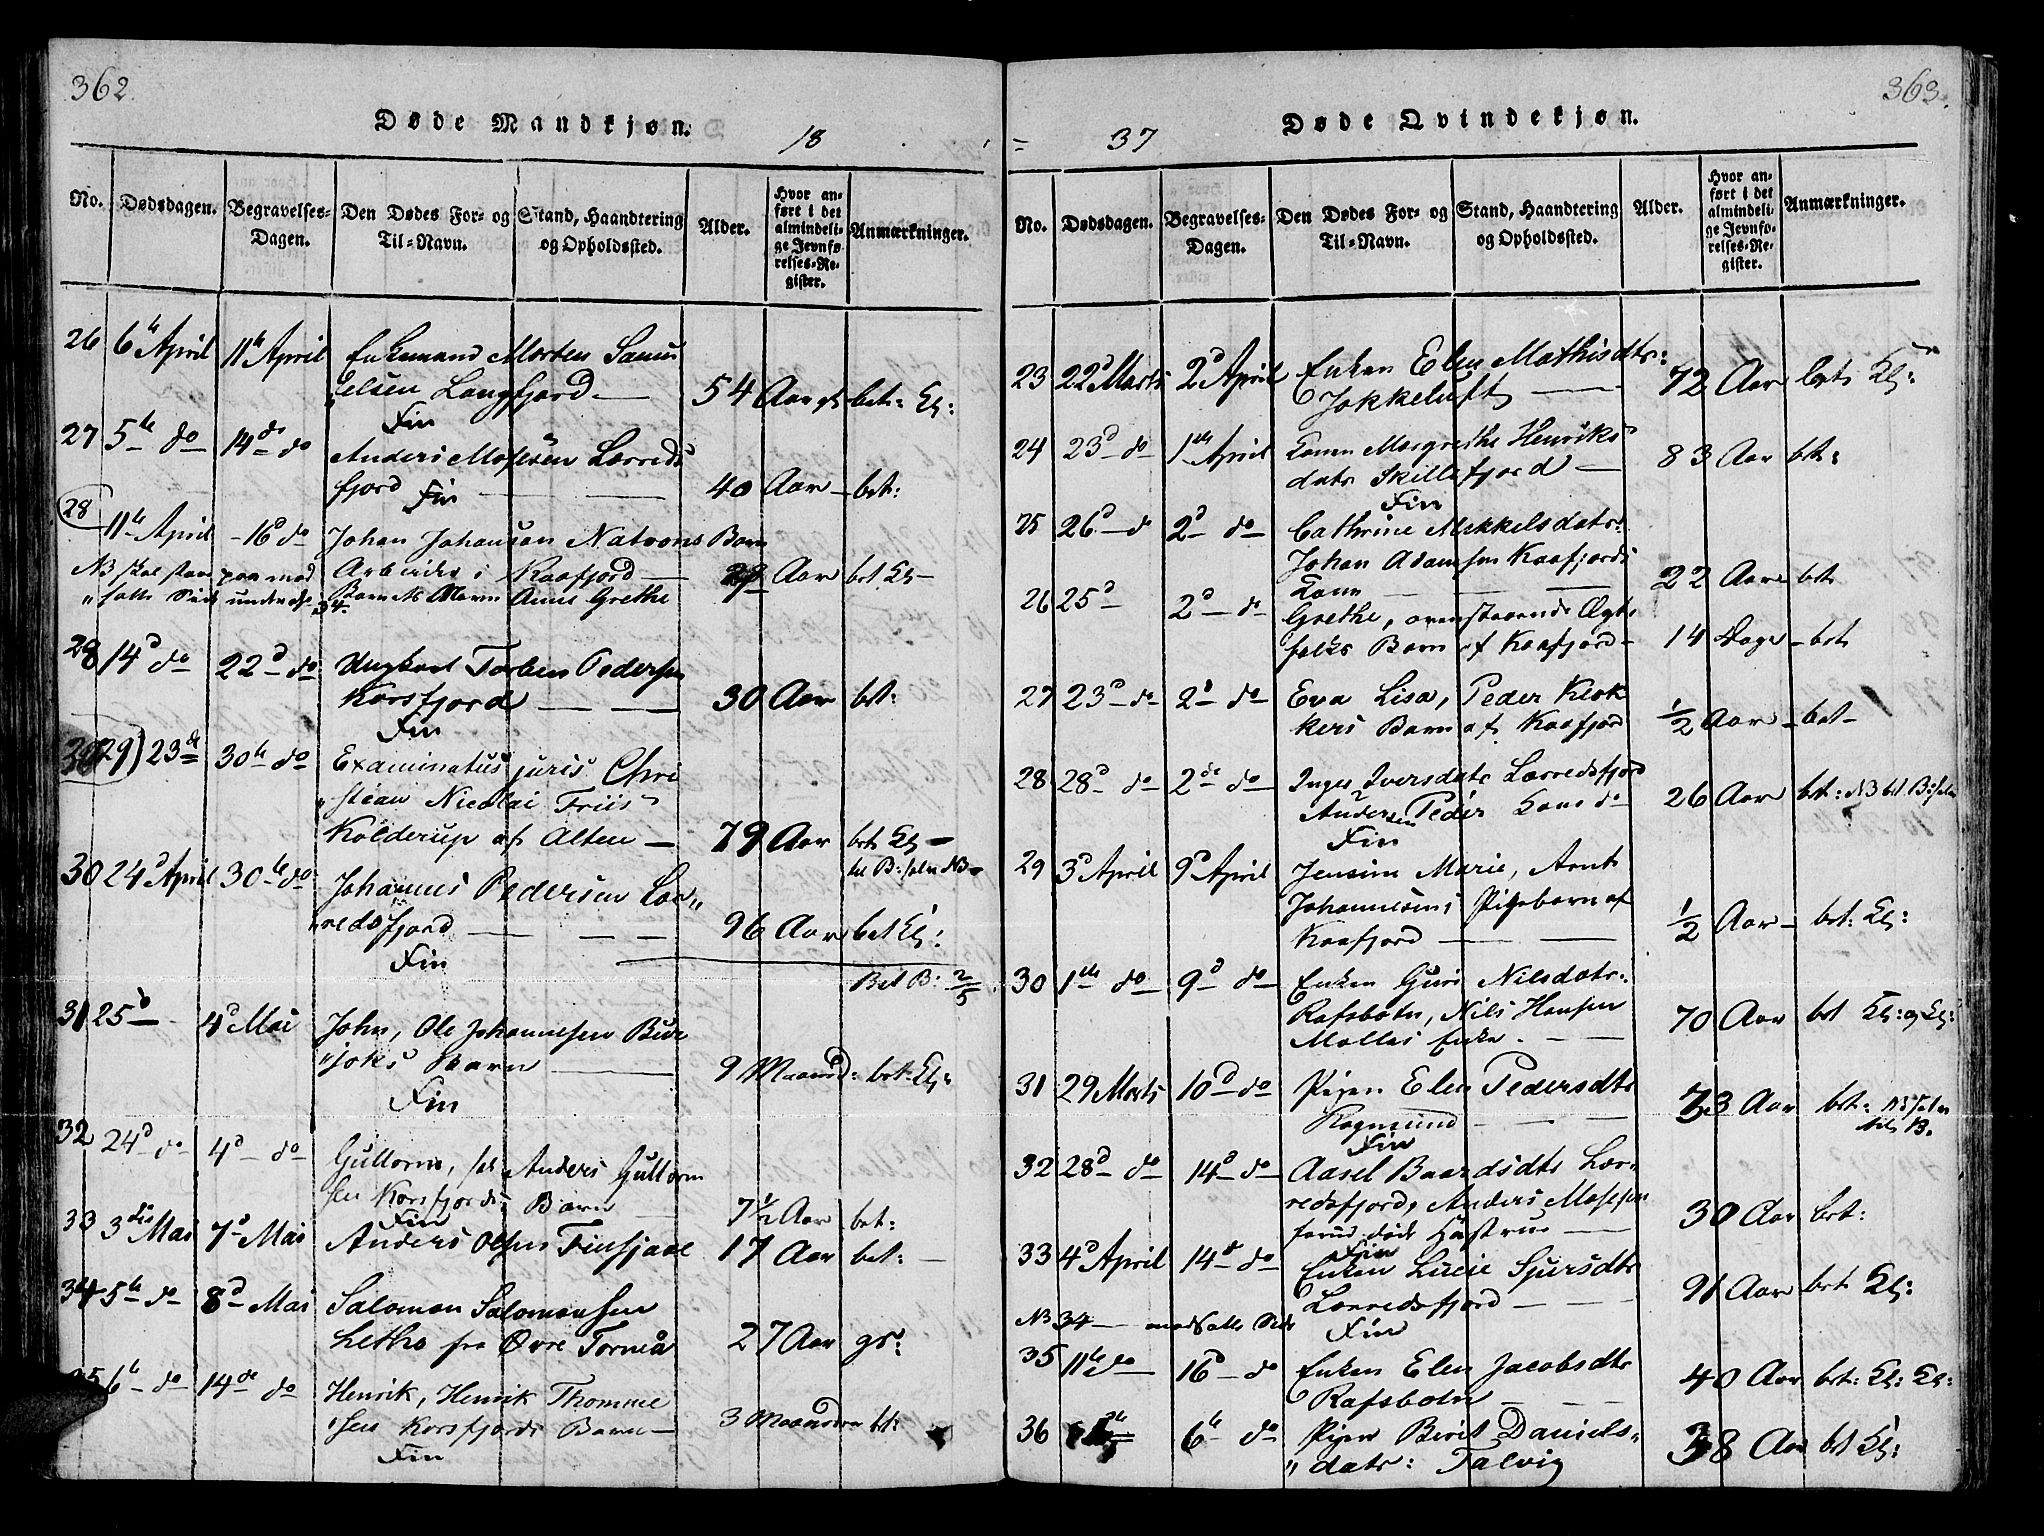 362.
Døde Mandkjøn.
18
No.
Dødsdagen.
Begravelses-
Dagen.
Den Dødes For- og
Til-Navn.
Stand, Haandtering
og Opholdssted.
Alder.
Hvor an-
ført i det
almindeli-
ge Jevnfø-
relses-Re-
gister.
Anmærkninger.
26 6te April 11te April Enkemand Morten Samu
elsen Langfjord 54 Aar bet: Kl:
Fin
27 5te do 14de do Anders Mosesen Lerreds
fjord 40 Aar bet:
Fin
28 11te April 16d do Johan Johansen Barn
NB skal staa paa mod Arbeider i Kaafjord Aar bet Kl
satte Side under No 34. Barn Anne Grethe
28 14d do 22d do Ungkarl Torben Pedersen
Korsfjord 30 Aar bet:
Fin
29) 23de 30te do Examinatus juris Chri
stian Nicolai Friis
Kolderup af Alten 79 Aar bet Kl
30 24d April 30te do Johannes Pedersen Ler
redsfjord 96 Aar bet Kl:
Fin
Bet B: 2/5
31 25d 4d Mai John, Ole Johannesen
joks Barn 9 Maaned: bet: Kl:
Fin
32 24d do 4d do Guttorm, Anders Guttorm
sen Korsfjords Barn 7½ Aar bet:
Fin
33 3die Mai 7d Mai Anders Olsen 17 Aar bet:
34 5te do 8d Mai Salomon Salomonsen
Letho fra Øvre Torneå 27 Aar gr:
35 6te do 14de do Henrik, Henrik Thomme
sen Korsfjords Barn 3 Maaneder bt:
Fin
363.
Døde Qvindekjøn.
37
No.
Dødsdagen.
Begravelses-
Dagen.
Den Dødes For- og
Til-Navn.
Stand, Haandtering
og Opholdssted.
Alder.
Hvor an-
ført i det
almindeli-
ge Jevnfø-
relses-Re-
gister.
Anmærkninger.
23 22d Marts 2d April Enken Elen Mathisdtr:
Jokkeluft 72 Aar bet Kl:
24 23d do 1te April Konen Margrethe Henriks
datr Skillefjord 83 Aar bet:
Fin
25 26d do 2d do Cathrine Mikkelsdatr:
Johan Adamsen Kaafjords
Kone 22 Aar bet
26 25d 2d do Grethe, ovenstaaende Ægte
folks Barn af Kaafjord 14 Dage bet
27 23d do 2d do Eva Lisa, Peder Klok
kers Barn af Kaafjord ½ Aar bet
28 28d do 2de do Inger Iversdatr Lerredsfjord
Andersen Peder Kone do 26 Aar bet: NB bet B:
Fin
29 3d April 9d April Jensine Marie, Arnt
Johannesens Pigebarn af
Kaafjord ½ Aar bet: Kl:
30 1te do 9d do Enken Guri Nilsdatr:
Rafsbotn, Nils Hansen
Mollas Enke. 70 Aar bet Kl: og Kl:
31 29 Marts 10d do Pigen Elen Pedersdtr
Rognsund 73 Aar bet:
Fin
32 28d do 14d do Aasel Baardsdtr Ler
redsfjord, Anders Mosesen
Hustrue 30 Aar bet:
Fin
33 4d April 14de do Enken Lucie Sjursdtr
Lerredsfjord 91 Aar bet Kl:
Fin
NB 34 modsatte Side
35 11te do 16d do Enken Elen Jacobsdtr
Rafsbotn 40 Aar bet: Kl: Kl:
36 6te do Pigen Berit Daniels
datr: Talvig 38 Aar bet Kl: